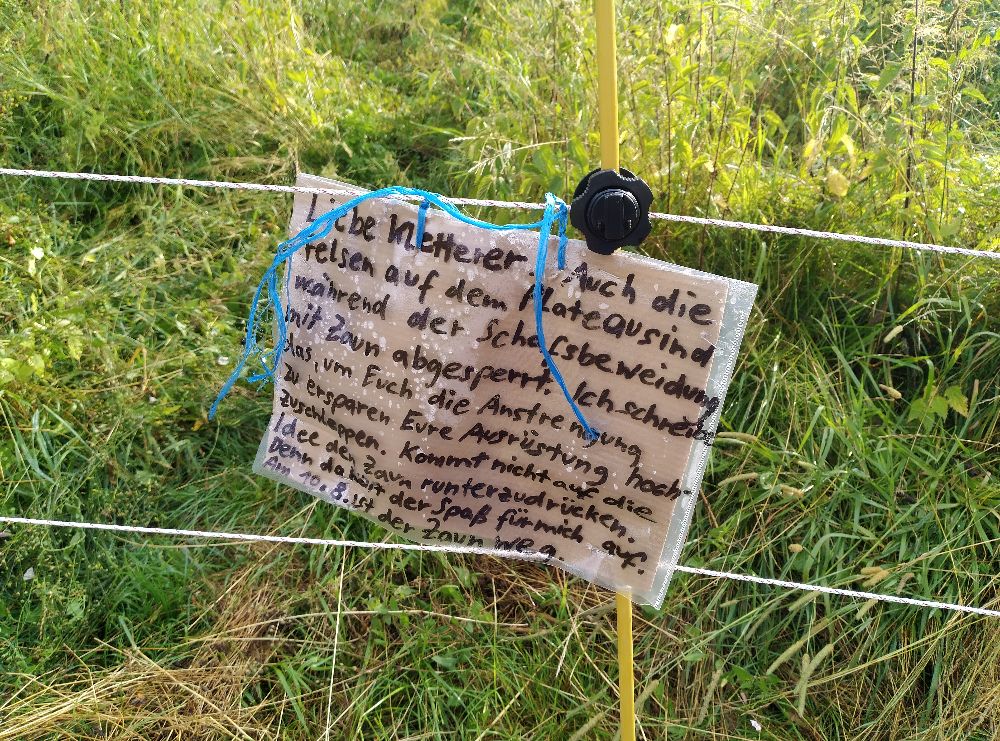 Liebe Kletterer. Auch die
Felsen auf dem Plateau sind
während der Schafsbeweidung
mit Zaun abgesperrt. Ich schreibe
das, um Euch die Anstrengung
zu ersparen Eure Ausrüstung hoch-
zuschleppen. Kommt nicht auf die
Idee den Zaun runterzudrücken.
Denn da hört der Spaß für mich auf.
Am 10.8. ist der Zaun weg.